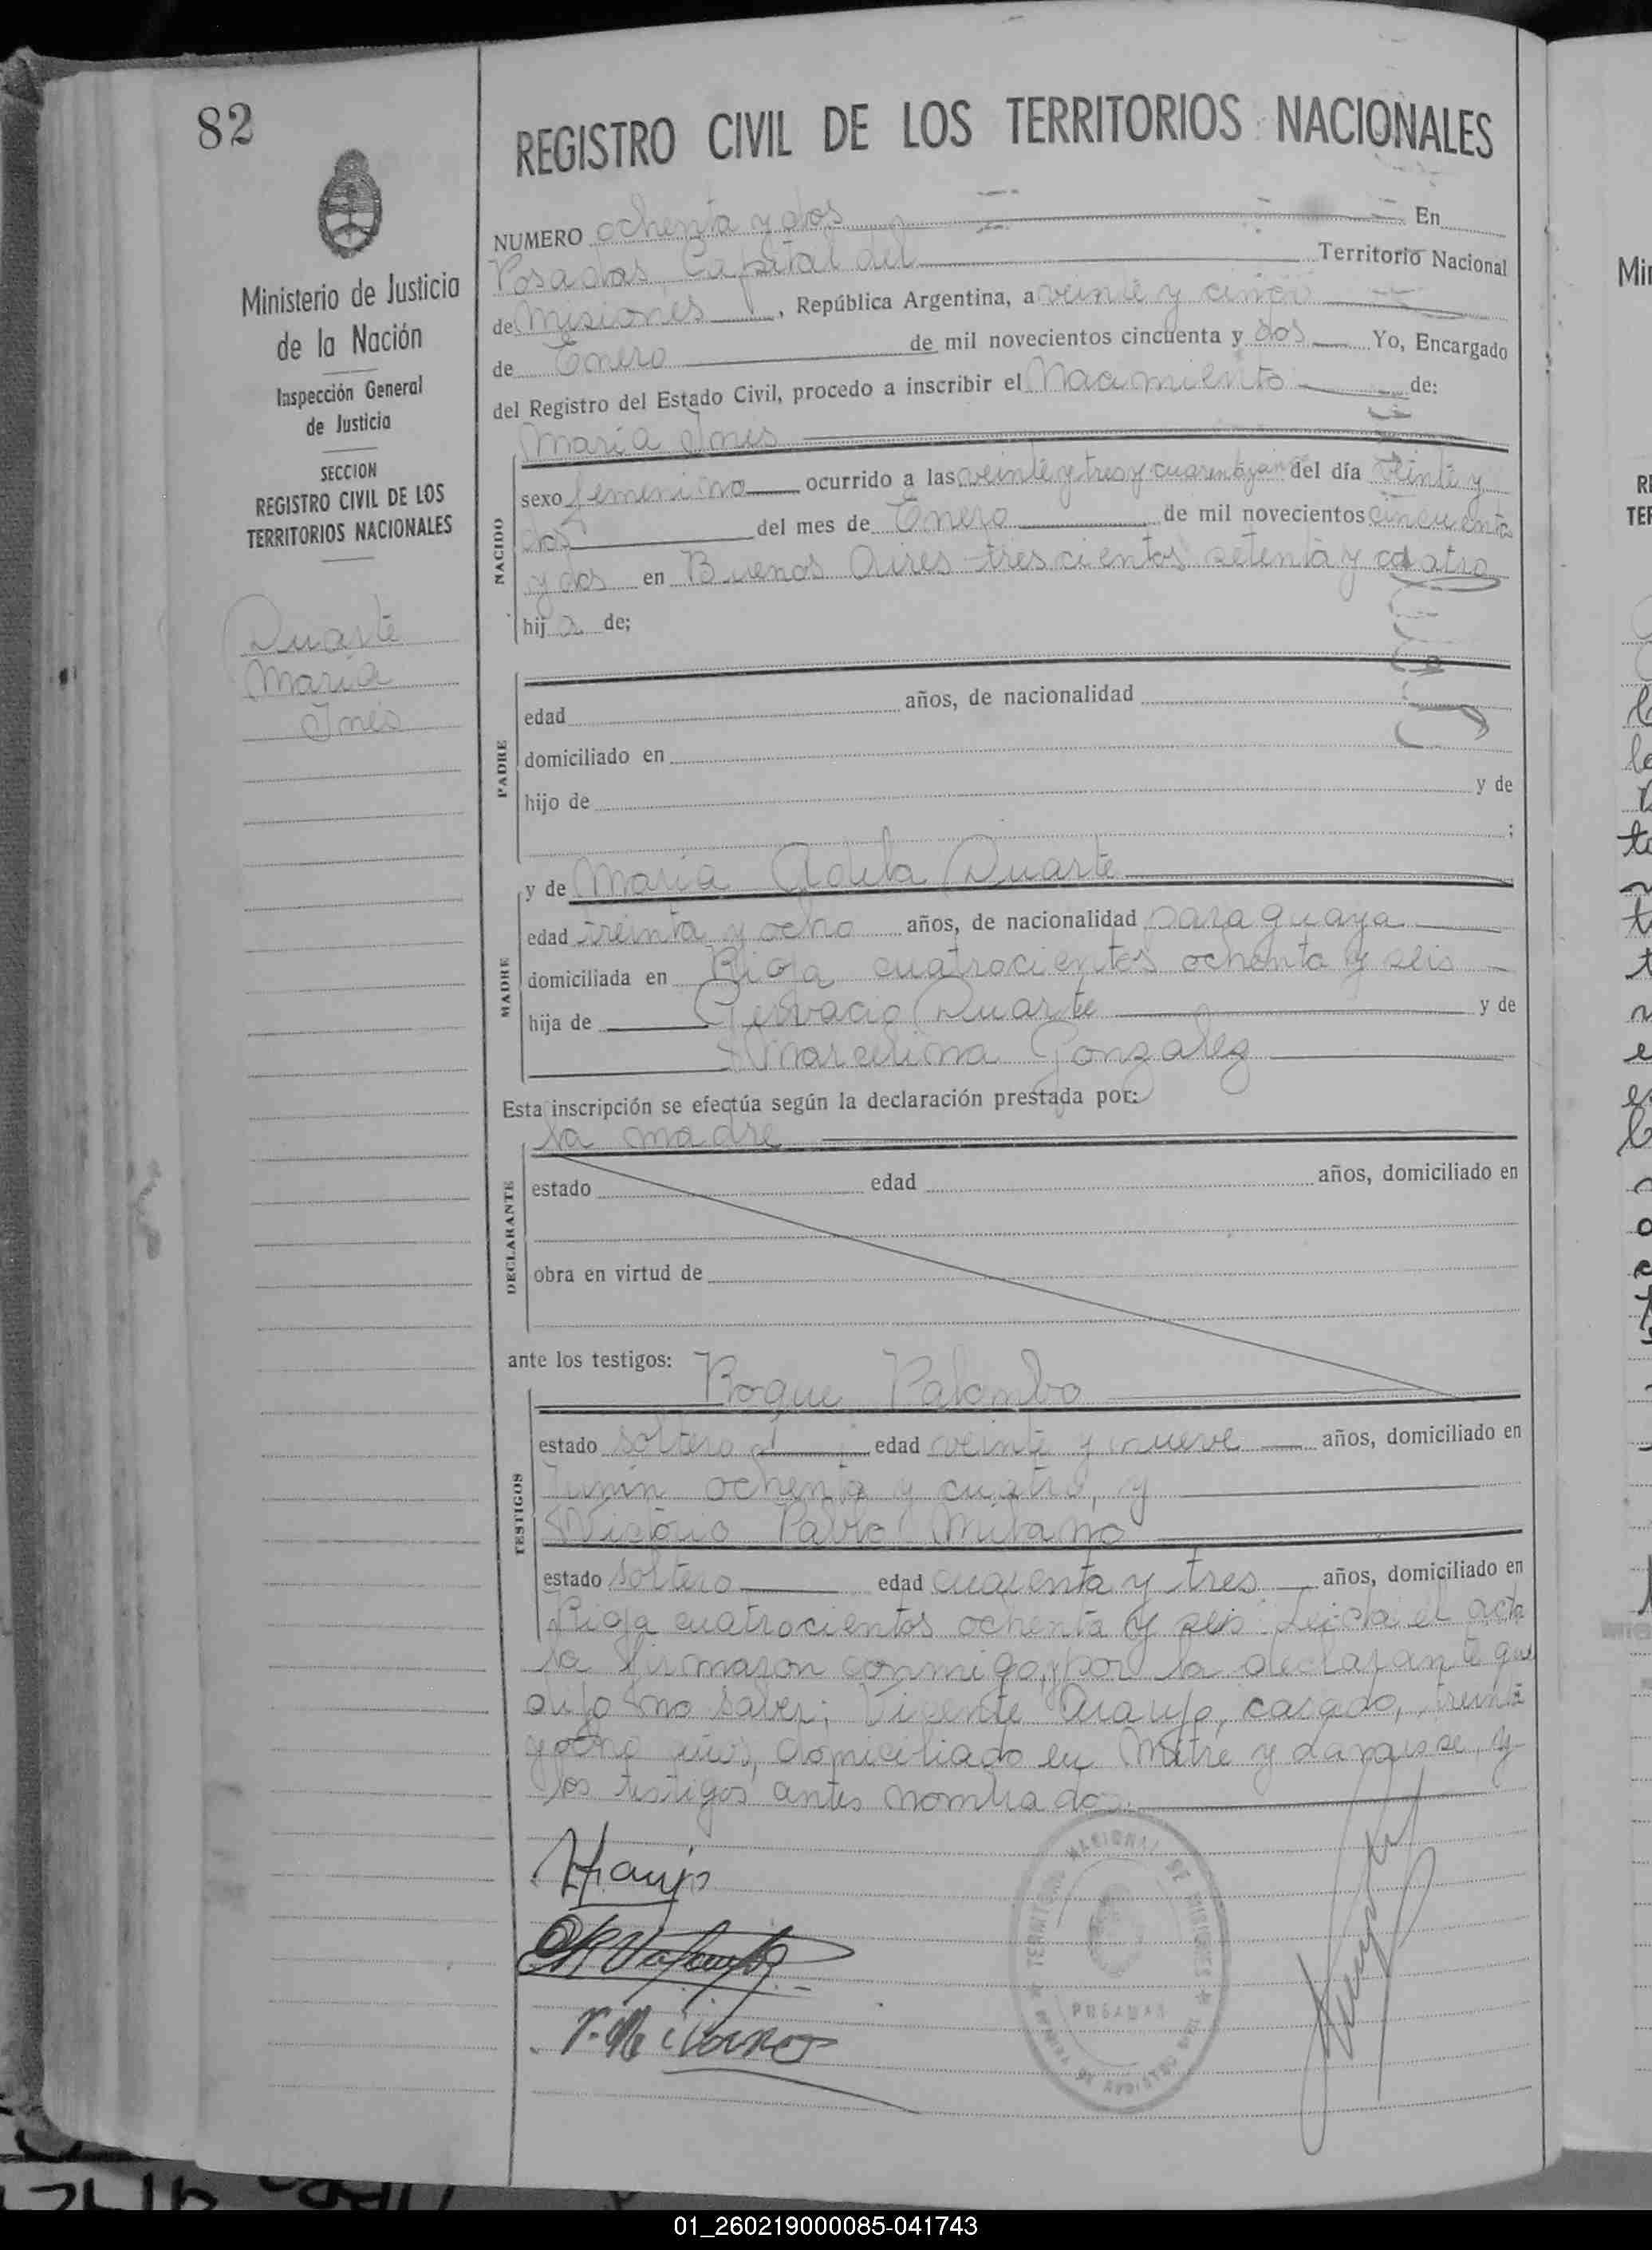 82
Ministerio de Justicia
de la Nación
Inspección General
de Justicia
SECCION
REGISTRO CIVIL DE LOS
TERRITORIOS NACIONALES
Duarte
María
Inés
REGISTRO CIVIL DE LOS TERRITORIOS NACIONALES
NUMERO ochenta y dos En
Posadas, Capital del Territorio Nacional
de Misiones, República Argentina, a veinte y cinco
de Enero de mil novecientos cincuenta y dos Yo, Encargado
del Registro del Estado Civil, procedo a inscribir el Nacimiento de:
María Ines
NACIDO
sexo femenino ocurrido a las veinte y tres y cuarenta del día veinte y
dos del mes de Enero de mil novecientos cincuenta
y dos en Buenos Aires trescientos setenta y cuatro
hija de;
PADRE
edad años, de nacionalidad
domiciliado en
hijo de y de
;
MADRE
y de María Adela Duarte
edad treinta y ocho años, de nacionalidad paraguaya
domiciliada en Rioja cuatrocientos ochenta y seis
hija de Gervacio Duarte y de
Marcelina Gonzalez
Esta inscripción se efectúa según la declaración prestada por:
la madre
DECLARANTE
estado edad años, domiciliado en
obra en virtud de
ante los testigos: Roque Palombo
TESTIGOS
estado soltero edad veinte y nueve años, domiciliado en
Junín ochenta y cuatro, y
Victorio Pablo Milano
estado soltero edad cuarenta y tres años, domiciliado en
Rioja cuatrocientos ochenta y seis. Leida el acta
la firmaron conmigo, y por la declarante que
dijo no saber; Vicente Araujo, casado, treinta
y ocho años, domiciliado en Mitre y y
los testigos antes nombrados.
Araujo
V. Milano
TERRITORIO NACIONAL DE MISIONES
POSADAS
01_260219000085-041743